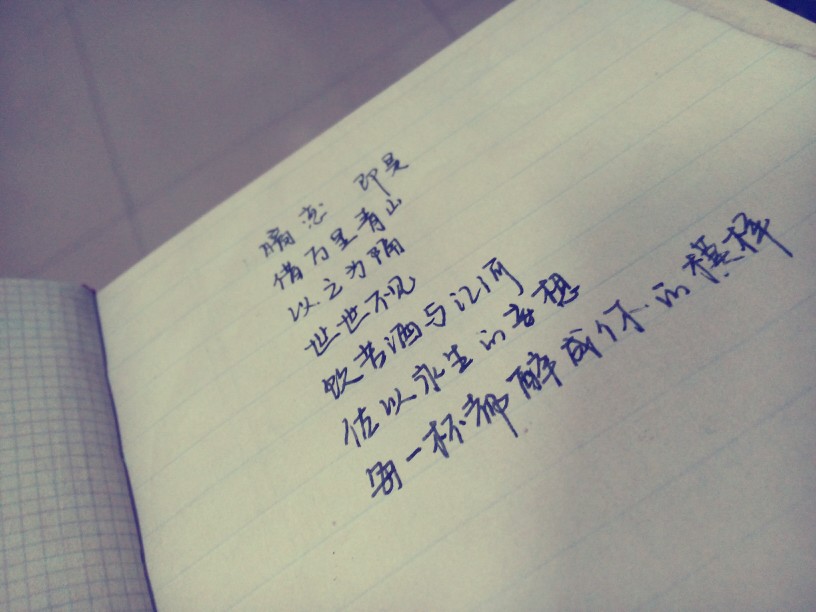 暗恋 即是
借万里青山
以之为隔
世世不见
饮苦酒与江河
佐以永生的妄想
每一杯都醉成你的模样